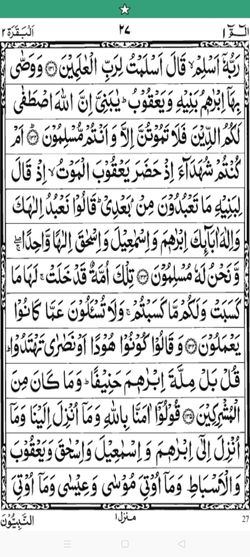 الٓمّٓ ١ ٢٧ اَلْبَقَرَة ٢
رَبُّهٗٓ اَسْلِمْ ۙ قَالَ اَسْلَمْتُ لِرَبِّ الْعٰلَمِيْنَ ﴿۱۳۱﴾ وَوَصّٰى
بِهَآ اِبْرٰهٖمُ بَنِيْهِ وَيَعْقُوْبُ ؕ يٰبَنِيَّ اِنَّ اللّٰهَ اصْطَفٰى
لَكُمُ الدِّيْنَ فَلَا تَمُوْتُنَّ اِلَّا وَاَنْتُمْ مُّسْلِمُوْنَ ﴿۱۳۲﴾ اَمْ
كُنْتُمْ شُهَدَآءَ اِذْ حَضَرَ يَعْقُوْبَ الْمَوْتُ ۙ اِذْ قَالَ
لِبَنِيْهِ مَا تَعْبُدُوْنَ مِنْۢ بَعْدِيْ ؕ قَالُوْا نَعْبُدُ اِلٰهَكَ
وَاِلٰهَ اٰبَآئِكَ اِبْرٰهٖمَ وَاِسْمٰعِيْلَ وَاِسْحٰقَ اِلٰهًا وَّاحِدًا ۖۚ
وَّنَحْنُ لَهٗ مُسْلِمُوْنَ ﴿۱۳۳﴾ تِلْكَ اُمَّةٌ قَدْ خَلَتْ ۚ لَهَا مَا
كَسَبَتْ وَلَكُمْ مَّا كَسَبْتُمْ ۚ وَلَا تُسْـَٔلُوْنَ عَمَّا كَانُوْا
يَعْمَلُوْنَ ﴿۱۳۴﴾ وَقَالُوْا كُوْنُوْا هُوْدًا اَوْ نَصٰرٰى تَهْتَدُوْا ؕ
قُلْ بَلْ مِلَّةَ اِبْرٰهٖمَ حَنِيْفًا ؕ وَمَا كَانَ مِنَ
الْمُشْرِكِيْنَ ﴿۱۳۵﴾ قُوْلُوْٓا اٰمَنَّا بِاللّٰهِ وَمَآ اُنْزِلَ اِلَيْنَا وَمَآ
اُنْزِلَ اِلٰٓى اِبْرٰهٖمَ وَاِسْمٰعِيْلَ وَاِسْحٰقَ وَيَعْقُوْبَ
وَالْاَسْبَاطِ وَمَآ اُوْتِيَ مُوْسٰى وَعِيْسٰى وَمَآ اُوْتِيَ
النَّبِيُّوْنَ منزل ١ 27